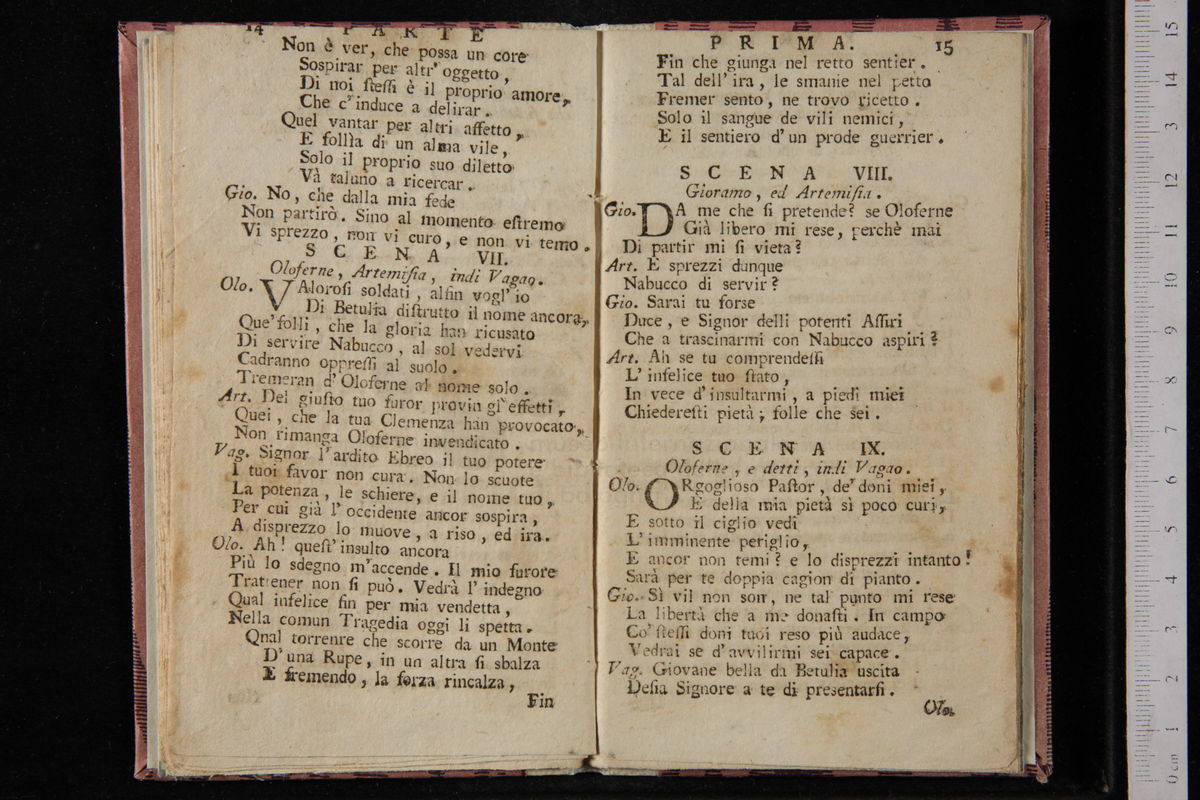 14 PARTE
Non è ver, che possa un core
Sospirar per altr' oggetto,
Di noi ſteſſi è il proprio amore,
Che c' induce a delirar.
Quel vantar per altri affetto,
E follìa di un alma vile,
Solo il proprio suo diletto
Và taluno a ricercar.
Gio. No, che dalla mia fede
Non partirò. Sino al momento eſtremo
Vi sprezzo, non vi curo, e non vi temo.
SCENA VII.
Oloferne, Artemiſia, indi Vagao.
Olo. VAloroſi soldati, alfin vogl' io
Di Betulia diſtrutto il nome ancora,
Que' folli, che la gloria han ricusato
Di servire Nabucco, al sol vedervi
Cadranno oppreſſi al suolo.
Tremeran d' Oloferne al nome solo.
Art. Del giuſto tuo furor provin gl' effetti,
Quei, che la tua Clemenza han provocato,
Non rimanga Oloferne invendicato.
Vag. Signor l' ardito Ebreo il tuo potere
I tuoi favor non cura. Non lo scuote
La potenza, le schiere, e il nome tuo,
Per cui già l' occidente ancor sospira,
A disprezzo lo muove, a riso, ed ira.
Olo. Ah! queſt' insulto ancora
Più lo sdegno m'accende. Il mio furore
Trattener non ſi può. Vedrà l' indegno
Qual infelice fin per mia vendetta,
Nella comun Tragedia oggi li spetta.
Qnal torrenre che scorre da un Monte
D' una Rupe, in un altra ſi sbalza
E fremendo, la forza rincalza,
Fin
PRIMA. 15
Fin che giunga nel retto sentier.
Tal dell' ira, le smanie nel petto
Fremer sento, ne trovo ricetto.
Solo il sangue de vili nemici,
E il sentiero d' un prode guerrier.
SCENA VIII.
Gioramo, ed Artemiſia.
Gio. DA me che ſi pretende? se Oloferne
Già libero mi rese, perchè mai
Di partir mi ſi vieta?
Art. E sprezzi dunque
Nabucco di servir?
Gio. Sarai tu forse
Duce, e Signor delli potenti Aſſiri
Che a trascinarmi con Nabucco aspiri?
Art. Ah se tu comprendeſſi
L' infelice tuo ſtato,
In vece d' insultarmi, a piedi miei
Chiedereſti pietà; folle che sei.
SCENA IX.
Oloferne, e detti, indi Vagao.
Olo. ORgoglioso Paſtor, de' doni miei,
E della mia pietà sì poco curi,
E sotto il ciglio vedi
L' imminente periglio,
E ancor non temi? e lo disprezzi intanto!
Sarà per te doppia cagion di pianto.
Gio. Sì vil non son, ne tal punto mi rese
La libertà che a me donaſti. In campo
Co' ſteſſi doni tuoi reso più audace,
Vedrai se d' avvilirmi sei capace.
Vag. Giovane bella da Betulia uscita
Deſia Signore a te di presentarſi.
Olo.
0 cm 1 2 3 4 5 6 7 8 9 10 11 12 13 14 15